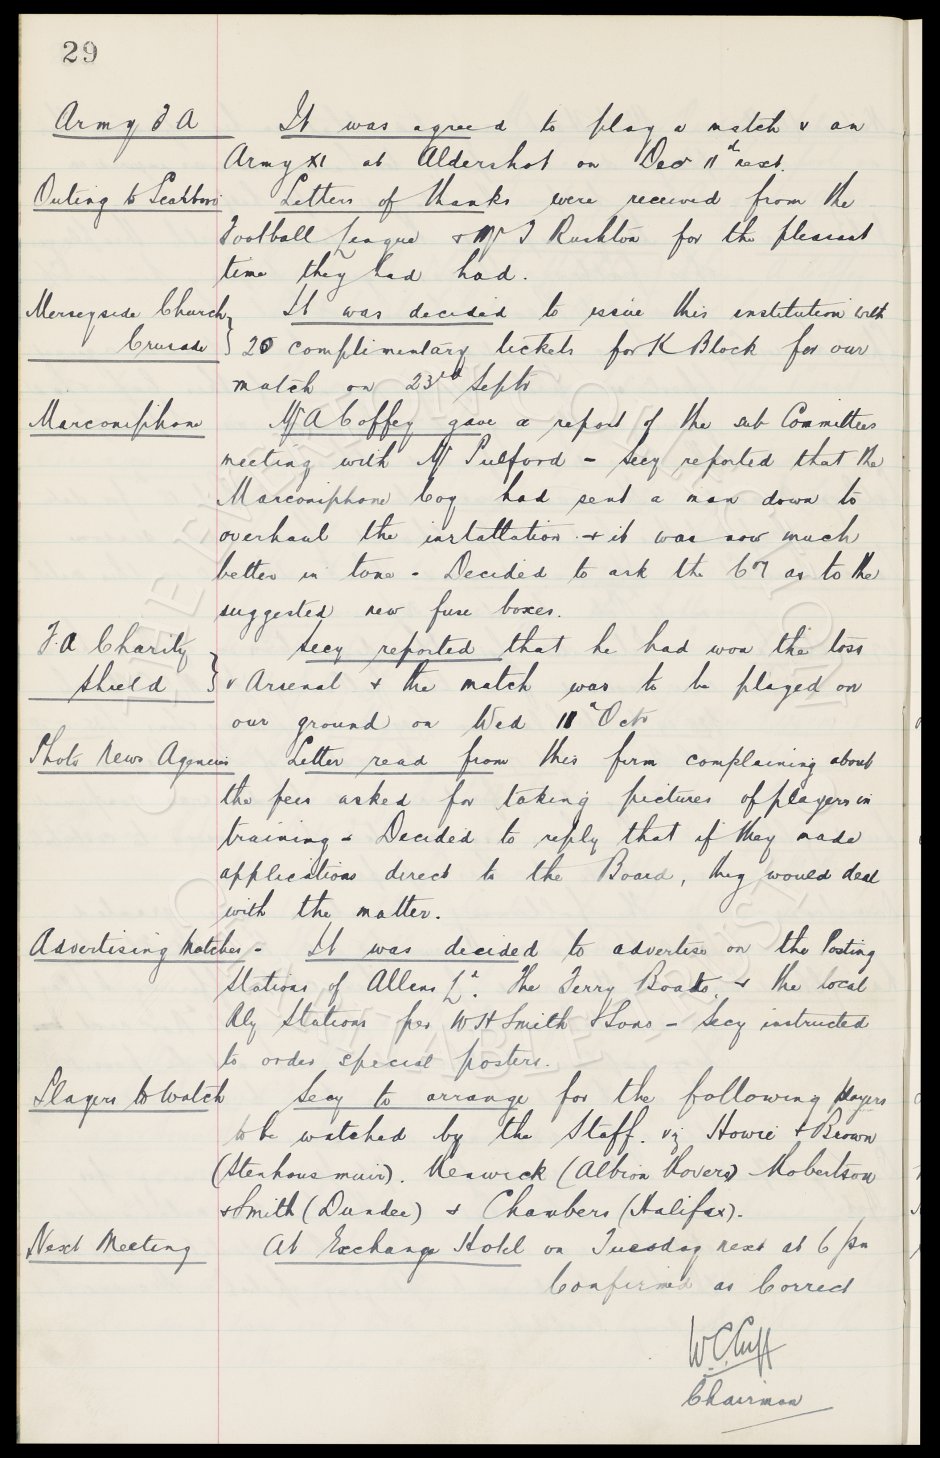 29
Army F A It was agreed to play a match v an
Army XI at Aldershot on Dec 11th next.
Outing to Letters of thanks were received from the
Football League & Mr J Rushton for the pleasant
time they had had.
Merseyside Church It was decided to issue this institution with
Crusade } 20 complimentary tickets for K Block for our
match on 23rd Septr
Marconiphone Mr A Coffey gave a report of the sub Committees
meeting with Mr Pulford - Secy reported that the
Marconiphone Coy had sent a man down to
overhaul the installation & it was now much
better in tone - Decided to ask the Coy as to the
suggested new fuse boxes.
F.A Charity Secy reported that he had won the toss
Shield } v Arsenal & the match was to be played on
our ground on Wed 18th Octr
Photo News Agencies Letter read from this firm complaining about
the fees asked for taking pictures of players in
training - Decided to reply that if they made
applications direct to the Board, they would deal
with the matter.
Advertising Matches - It was decided to advertise on the Posting
Stations of Allens Ld. The Ferry Boats, & the local
Rly Stations per W H Smith & Sons - Secy instructed
to order special posters.
Players to Watch Secy to arrange for the following players
to be watched by the Staff. viz Howie & Brown
(Stenhousmuir). Renwick (Albion Rovers) Robertson
& Smith (Dundee) & Chambers (Halifax).
Next Meeting At Exchange Hotel on Tuesday next at 6 pm
Confirmed as Correct
W.C. Cuff
Chairman